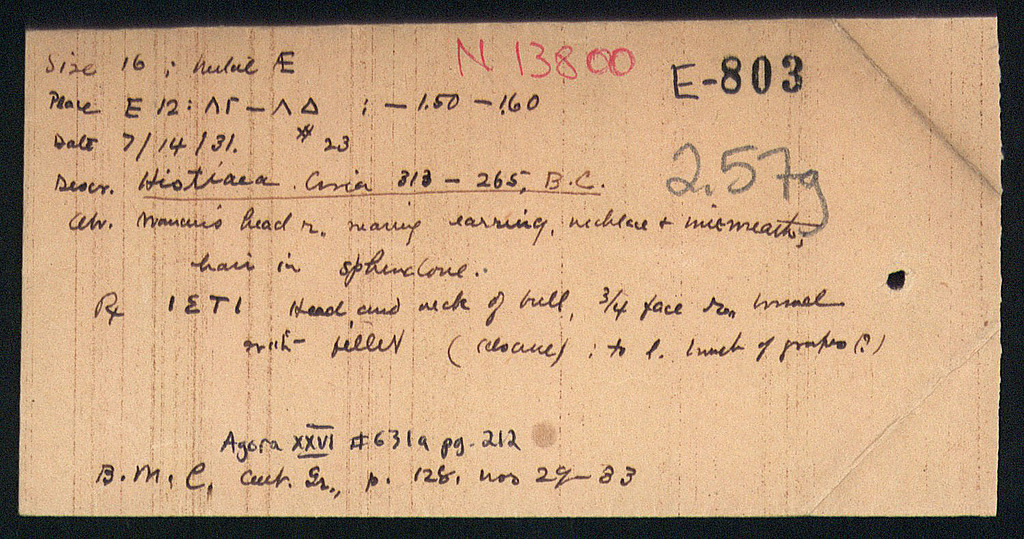 N 13800
E-803
Size 16 ; metal Æ
Place E 12 : ΛΓ – ΛΔ ; – 1.50 – 1.60
Date 7/14/31. # 23
2.57g
Descr. Histiaea. Circa 313 – 265, B.C.
Obv. Woman's head r. wearing earring, necklace + vinewreath,
hair in sphendone.
R IΣTI Head and neck of bull, 3/4 face r.
with fillet ( ) : to l. bunch of grapes (?)
Agora XXVI #631a pg. 212
B.M.C. Cent. Gr., p. 128. nos 29–33